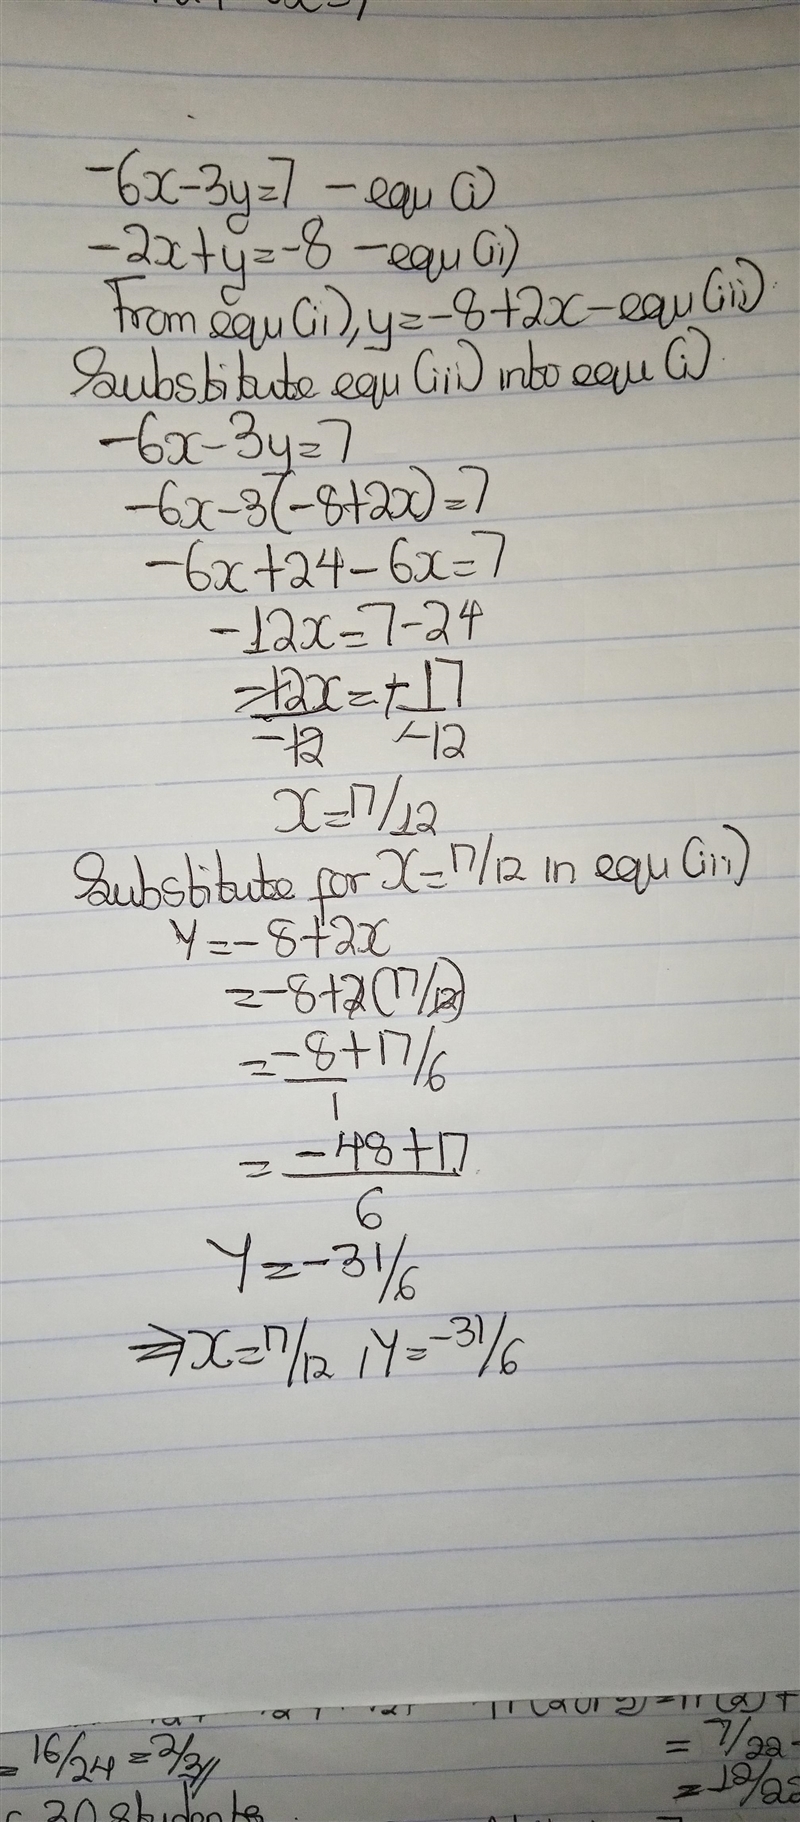 -6x-3y=7 - equ (i)
-2x+y=-8 - equ (ii)
From equ (ii), y=-8+2x - equ (iii)
Substitute equ (iii) into equ (i)
-6x-3y=7
-6x-3(-8+2x)=7
-6x+24-6x=7
-12x=7-24
-12x=-17
-12 -12
x=17/12
Substitute for x=17/12 in equ (iii)
y=-8+2x
=-8+2(17/12)
=-8+17/6
1
=-48+17
6
Y=-31/6
⇒x=17/12, Y=-31/6
=16/24=2/3
= 7/22
30 Students
=12/22